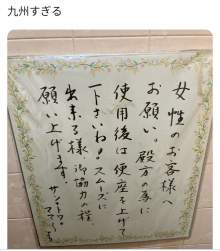 九州すぎる
女性のお客様へ
お願い。殿方の為に
使用後は便座を上げて
下さいね!スムーズに
出来る様御協力の程
願い上げます。